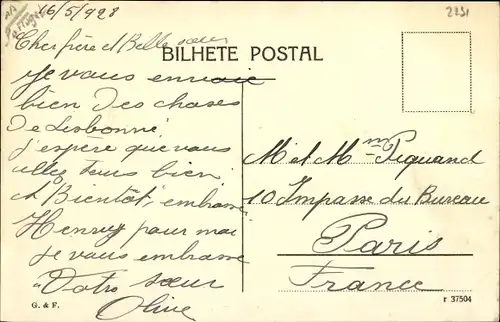 16/5/928
2231
Cher frère et Belle sœur
BILHETE POSTAL
Je vous envoie
bien des choses
de Lisbonne
j'espère que vous
allez tous bien
et Bientôt, embrasse
Henry pour moi
je vous embrasse
Votre sœur
Olive
M et Mme Piquand
10 Impasse du Bureau
Paris
France
G. & F.
r 37504